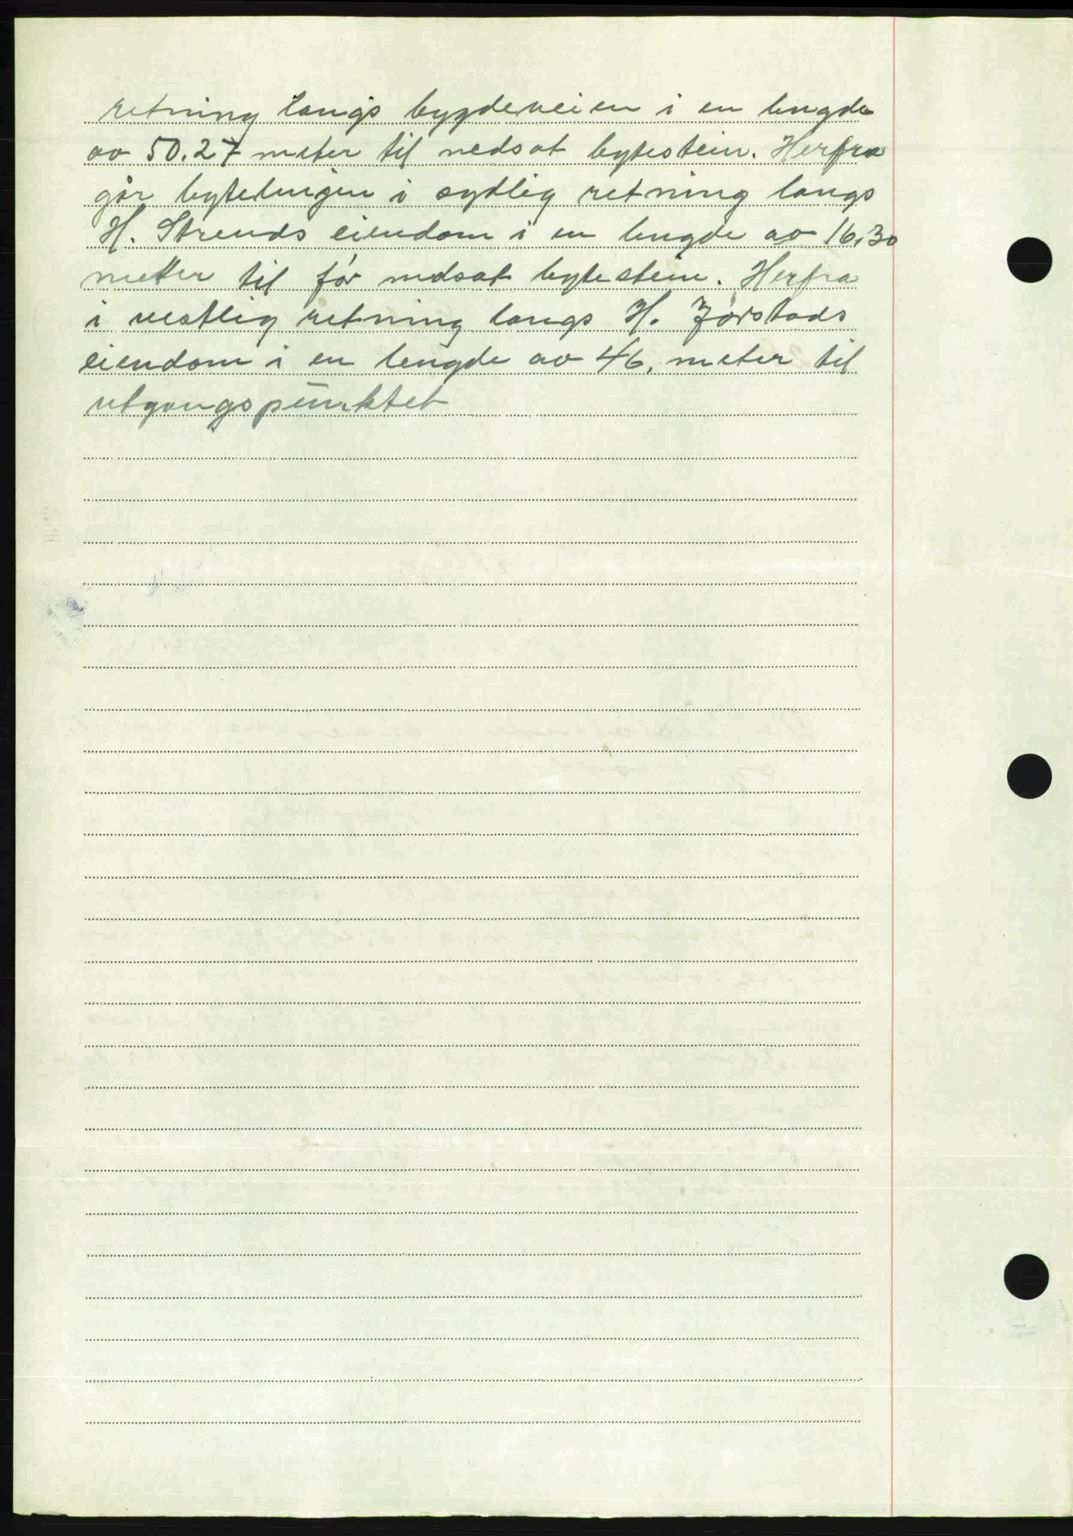 retning langs bygdeveien i en lengde
av 50.27 meter til nedsat bytestein. Herfra
går bytelinjen i sydlig retning langs
H. Strends eiendom i en lengde av 16,30
meter til før nedsat bytestein. Herfra
i vestlig retning langs H. Jørstads
eiendom i en lengde av 46, meter til
utgangspunktet